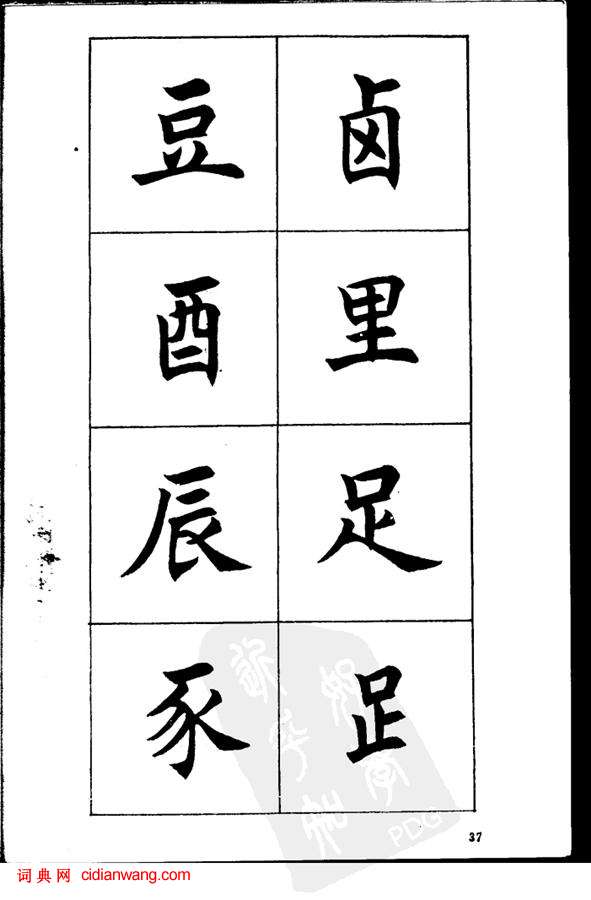 卤里足⻊
豆酉辰豕
37
PDG
词典网 cidianwang.com